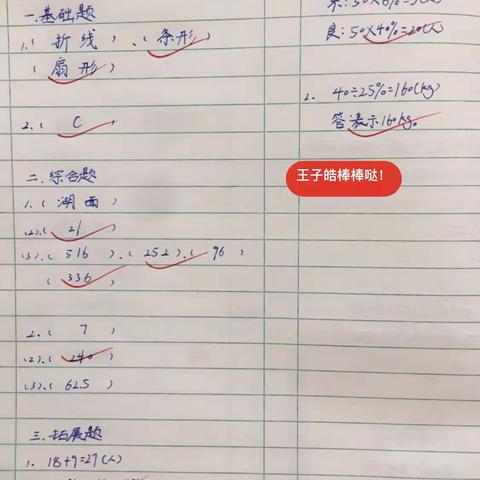 一.基础题
1.( 折线 ).( 条形 )
( 扇形 )
2.( C )
二.综合题
1.( 湖西 )
(2).( 21 )
(3).( 516 ).( 252 ).( 96 )
( 336 )
2.( 7 )
(2).( 240 )
(3).( 62.5 )
三.拓展题
1. 18+9=27(人)
良:50×40%=20(人)
2. 40÷25%=160(kg)
答:表示160kg。
王子皓棒棒哒!